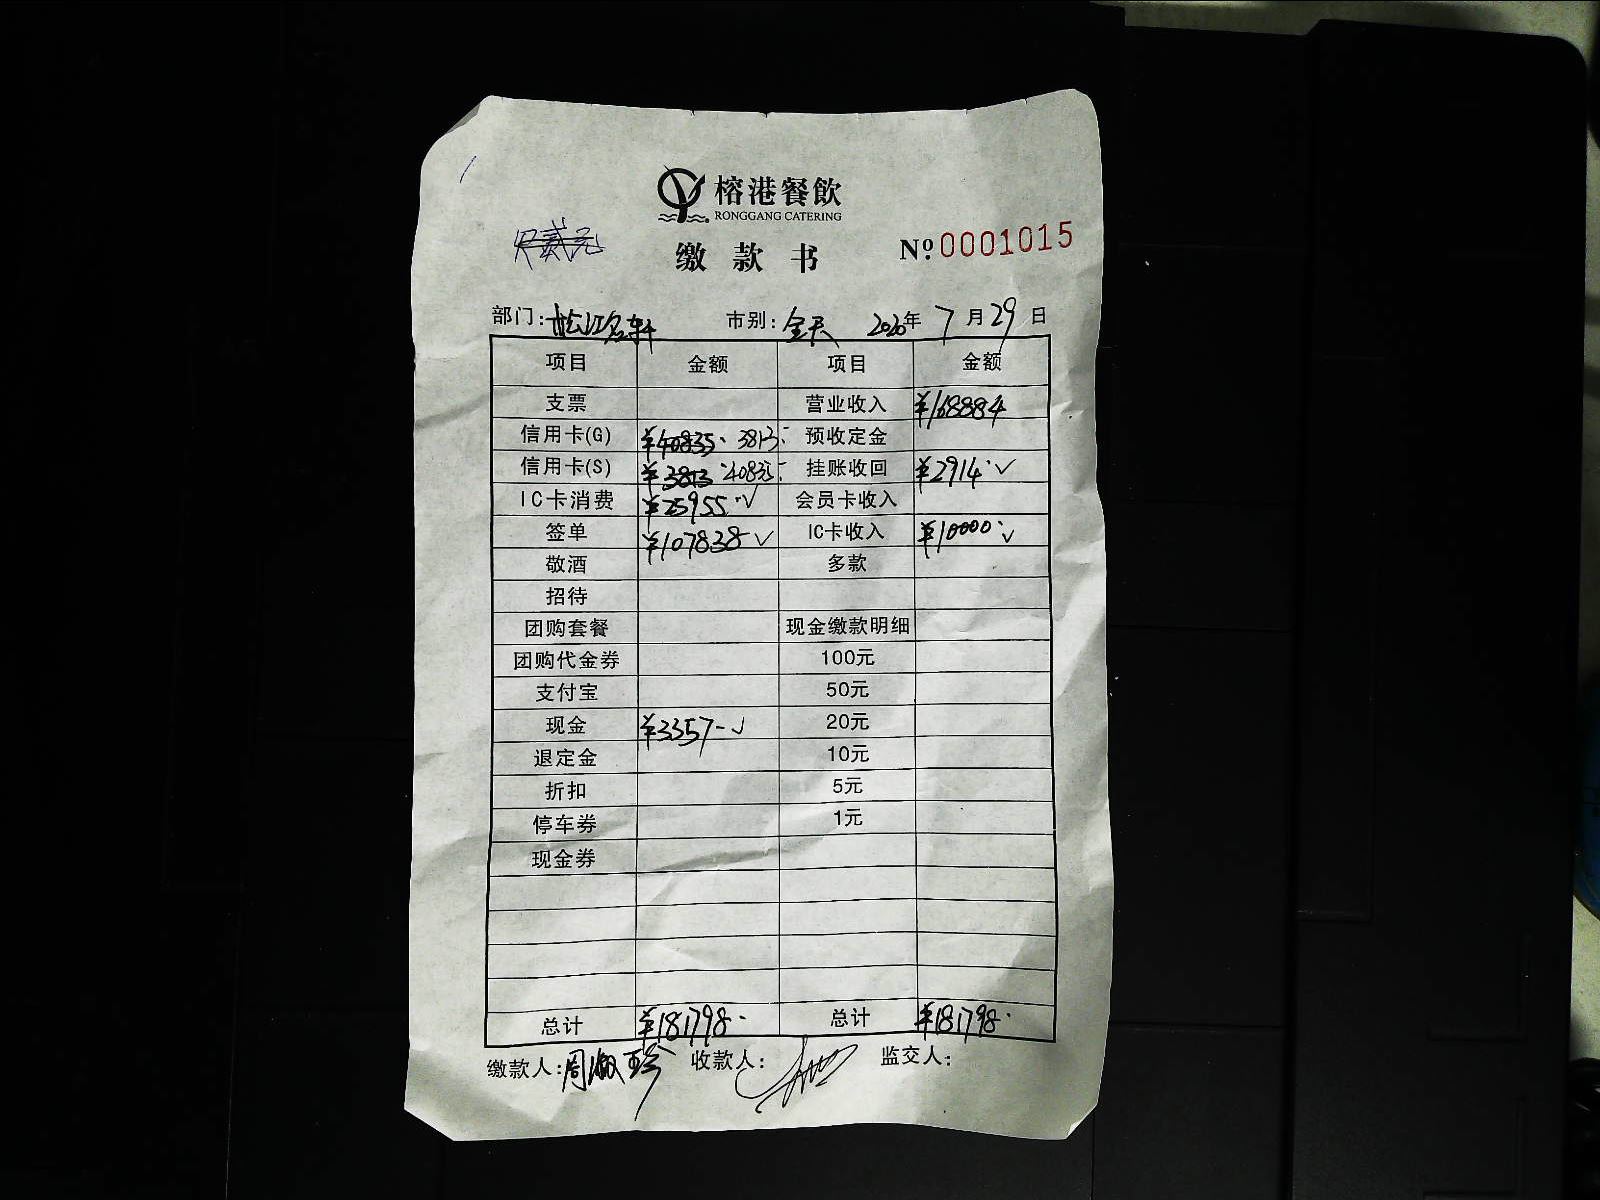 榕港餐飲
RONGGANG CATERING
缴款书
№ 0001015
部门: 松江名轩 市别: 全天 2020年 7月29日
项目 金额 项目 金额
支票 营业收入 ¥168884
信用卡(G) ¥40835. 3813 预收定金
信用卡(S) ¥3813 40835 挂账收回 ¥2914.✓
IC卡消费 ¥25955.✓ 会员卡收入
签单 ¥107838✓ IC卡收入 ¥10000.✓
敬酒 多款
招待
团购套餐 现金缴款明细
团购代金券 100元
支付宝 50元
现金 ¥3357-✓ 20元
退定金 10元
折扣 5元
停车券 1元
现金券
总计 ¥181798. 总计 ¥181798.
缴款人: 周淑珍 收款人: 监交人: